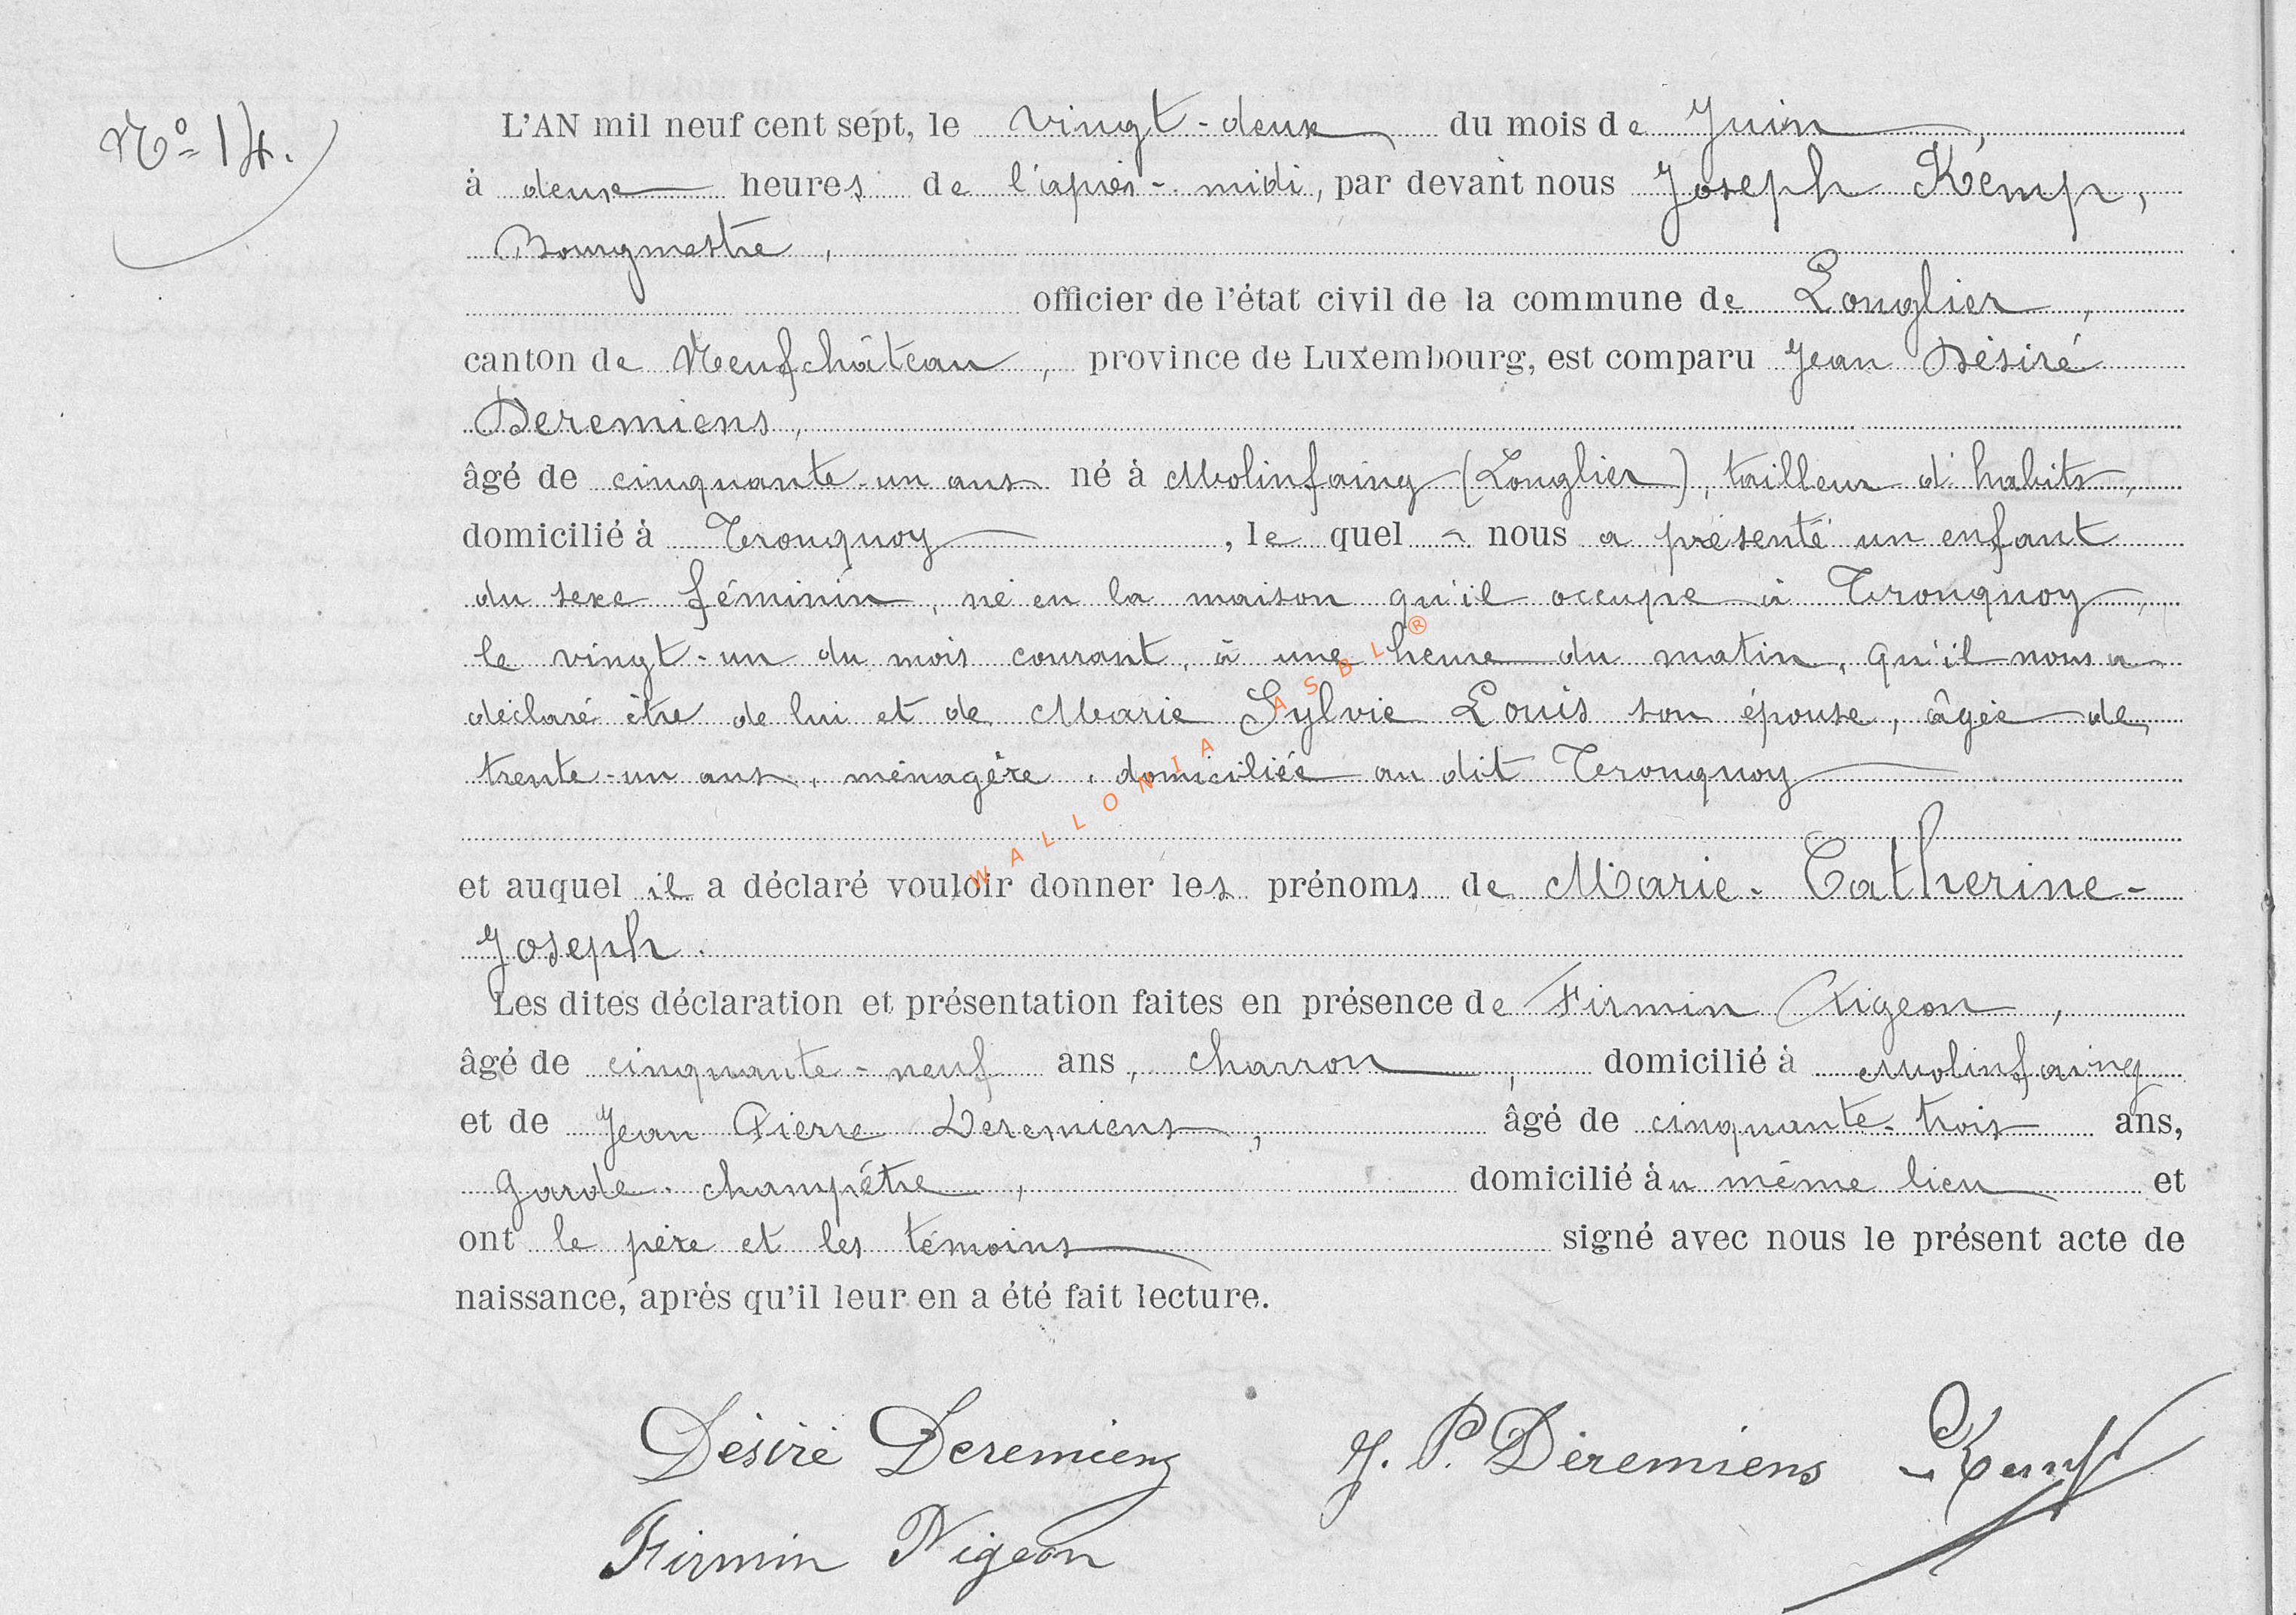 N° 14.
L'AN mil neuf cent sept, le vingt-deux du mois de Juin,
à deux heures de l'après-midi, par devant nous Joseph Kemp,
Bourgmestre,
officier de l'état civil de la commune de Longlier,
canton de Neufchâteau, province de Luxembourg, est comparu Jean Désiré
Deremiens,
âgé de cinquante-un ans né à Molinfaing (Longlier), tailleur d'habits,
domicilié à Tronquoy, le quel nous a présenté un enfant
du sexe féminin, né en la maison qu'il occupe à Tronquoy,
le vingt-un du mois courant, à une heure du matin, qu'il nous a
déclaré être de lui et de Marie Sylvie Louis son épouse, âgée de
trente-un ans, ménagère, domiciliée au dit Tronquoy
et auquel il a déclaré vouloir donner les prénoms de Marie-Catherine-
Joseph.
Les dites déclaration et présentation faites en présence de Firmin Pigeon,
âgé de cinquante-neuf ans, charron, domicilié à Molinfaing
et de Jean Pierre Deremiens, âgé de cinquante-trois ans,
garde-champêtre, domicilié àu même lieu et
ont le père et les témoins signé avec nous le présent acte de
naissance, après qu'il leur en a été fait lecture.
Désiré Deremiens J. P. Deremiens Kemp
Firmin Pigeon
WALLONIA ASBL®